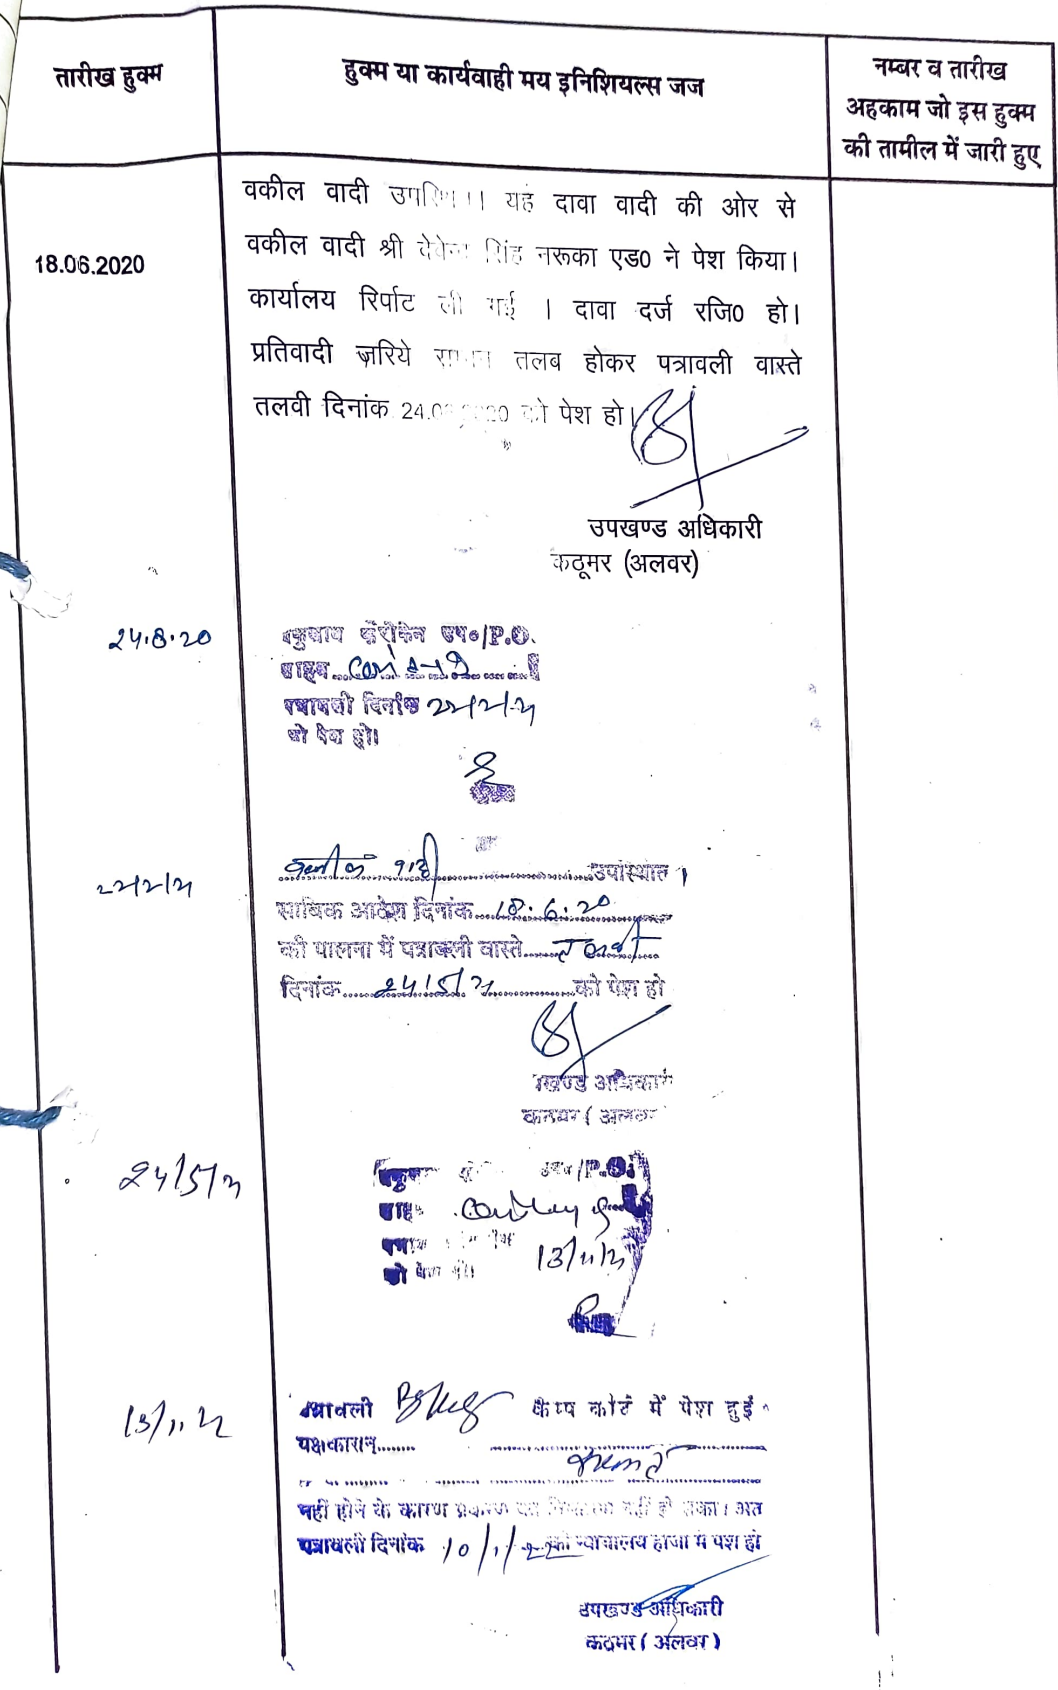 तारीख हुक्म
हुक्म या कार्यवाही मय इनिशियल्स जज
नम्बर व तारीख
अहकाम जो इस हुक्म
की तामील में जारी हुए
18.06.2020
वकील वादी यह दावा वादी की ओर से
वकील वादी श्री सिंह नरूका एड0 ने पेश किया।
कार्यालय रिर्पाट ली गई । दावा दर्ज रजि0 हो।
प्रतिवादी ज़रिये तलब होकर पत्रावली वास्ते
तलवी दिनांक को पेश हो।
उपखण्ड अधिकारी
कठूमर (अलवर)
24.8.20
P.O.
पत्रावली दिनांक 22/2/21
को पेश हो।
22/2/21
वकील वादी उपस्थित ।
साबिक आदेश दिनांक 18.6.20
की पालना में पत्रावली वास्ते तलवी
दिनांक 24/5/21 को पेश हो
खण्ड अधिकारी
( अलवर
24/5/21
/P.O.
13/11/21
13/11/21
पत्रावली कैम्प कोर्ट में पेश हुई
पक्षकारान
नहीं होने के कारण प्रकरण का नहीं हो सका। अत
पत्रावली दिनांक 10/1/22 को न्यायालय हाजा में पेश हो
उपखण्ड अधिकारी
कठूमर ( अलवर )